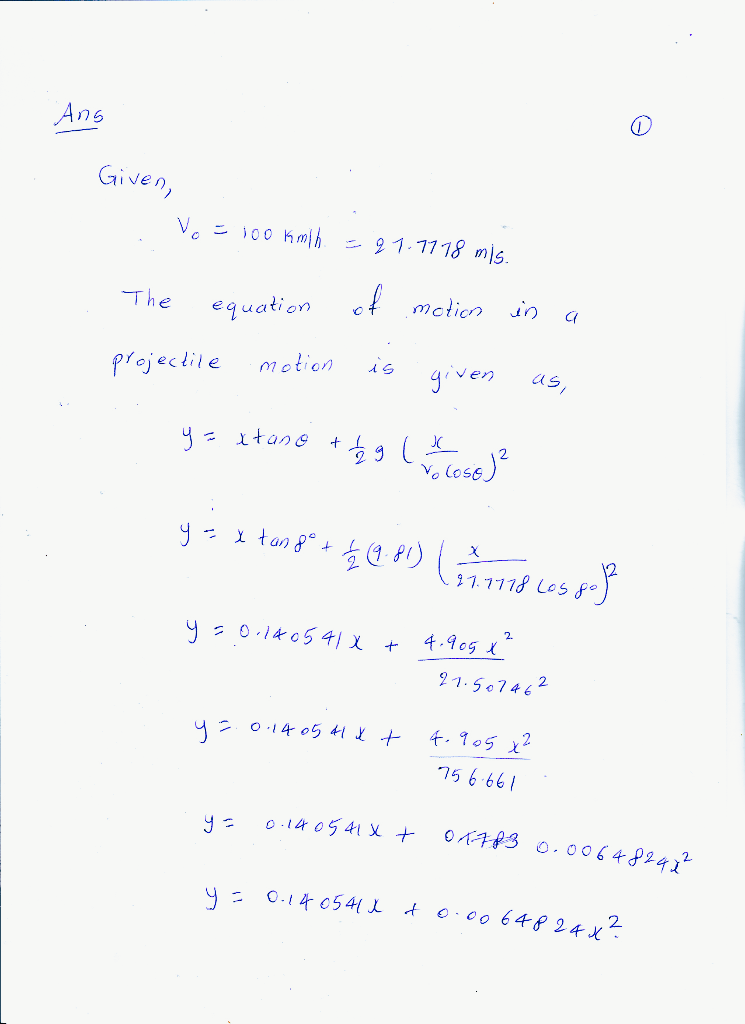 Ans
①
Given,
V₀ = 100 Km/h = 27.7778 m/s.
The equation of motion in a
projectile motion is given as,
y = x tan θ + 1/2 g (x / V₀ cos θ)²
y = x tan 8° + 1/2 (9.81) (x / 27.7778 cos 8°)²
y = 0.140541 x + 4.905 x² / 27.50746²
y = 0.140541 x + 4.905 x² / 756.661
y = 0.140541 x + 0.0064824 x²
y = 0.140541 x + 0.0064824 x².